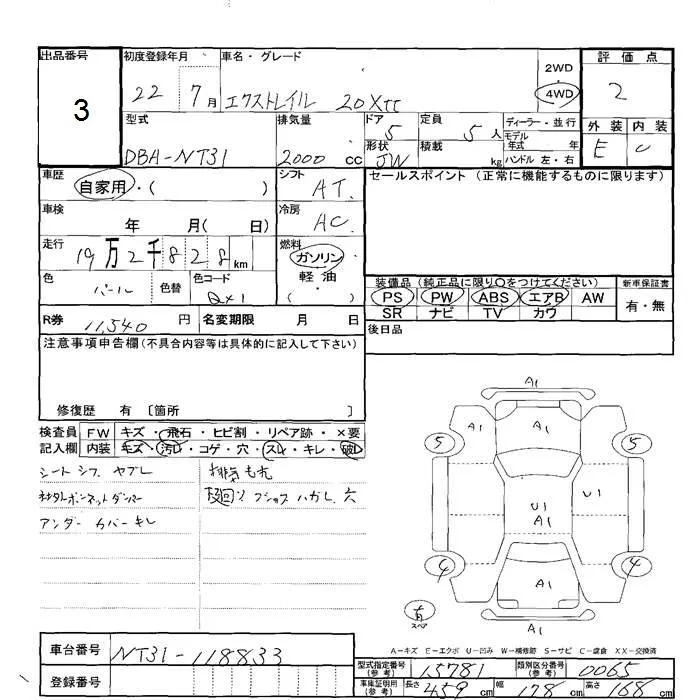 出品番号
3
初度登録年月
22 7月
車名・グレード
エクストレイル 20Xtt
2WD
4WD
評価点
2
外装 内装
E C
型式
DBA-NT31
排気量
2000 cc
ドア
5
定員
5 人
形状
JW
積載
kg
ディーラー・並行
モデル
年式 年
ハンドル 左・右
車歴
自家用・( )
シフト
AT
セールスポイント (正常に機能するものに限ります)
車検
年 月( 日)
冷房
AC
走行
19万2千828 km
燃料
ガソリン
軽油
( )
色
パール
色替
色コード
QX1
装備品 (純正品に限り○をつけてください)
PS PW ABS エアB AW
SR ナビ TV カワ
新車保証書
有・無
R券
11,540 円
名変期限 月 日
後日品
注意事項申告欄(不具合内容等は具体的に記入して下さい)
修復歴 有 〔箇所 〕
検査員 FW キズ・飛石・ヒビ割・リペア跡・×要
記入欄 内装 キズ・汚レ・コゲ・穴・スレ・キレ・破レ
シート シワ ヤブレ
排気もれ
ボンネットダンパー
ブッシュ ハガレ 穴
アンダー カバー キレ
A1
A1 A1
5 5
U1
U1
A1
4 4
A1
有
スペア
A1
A-キズ E-エクボ U-凹み W-補修跡 S-サビ C-腐食 XX-交換済
車台番号
NT31-118833
登録番号
型式指定番号
(参考)
15781
類別区分番号
(参考)
0065
車庫証明用
(参考)
長さ 459 cm 幅 178 cm 高さ 168 cm